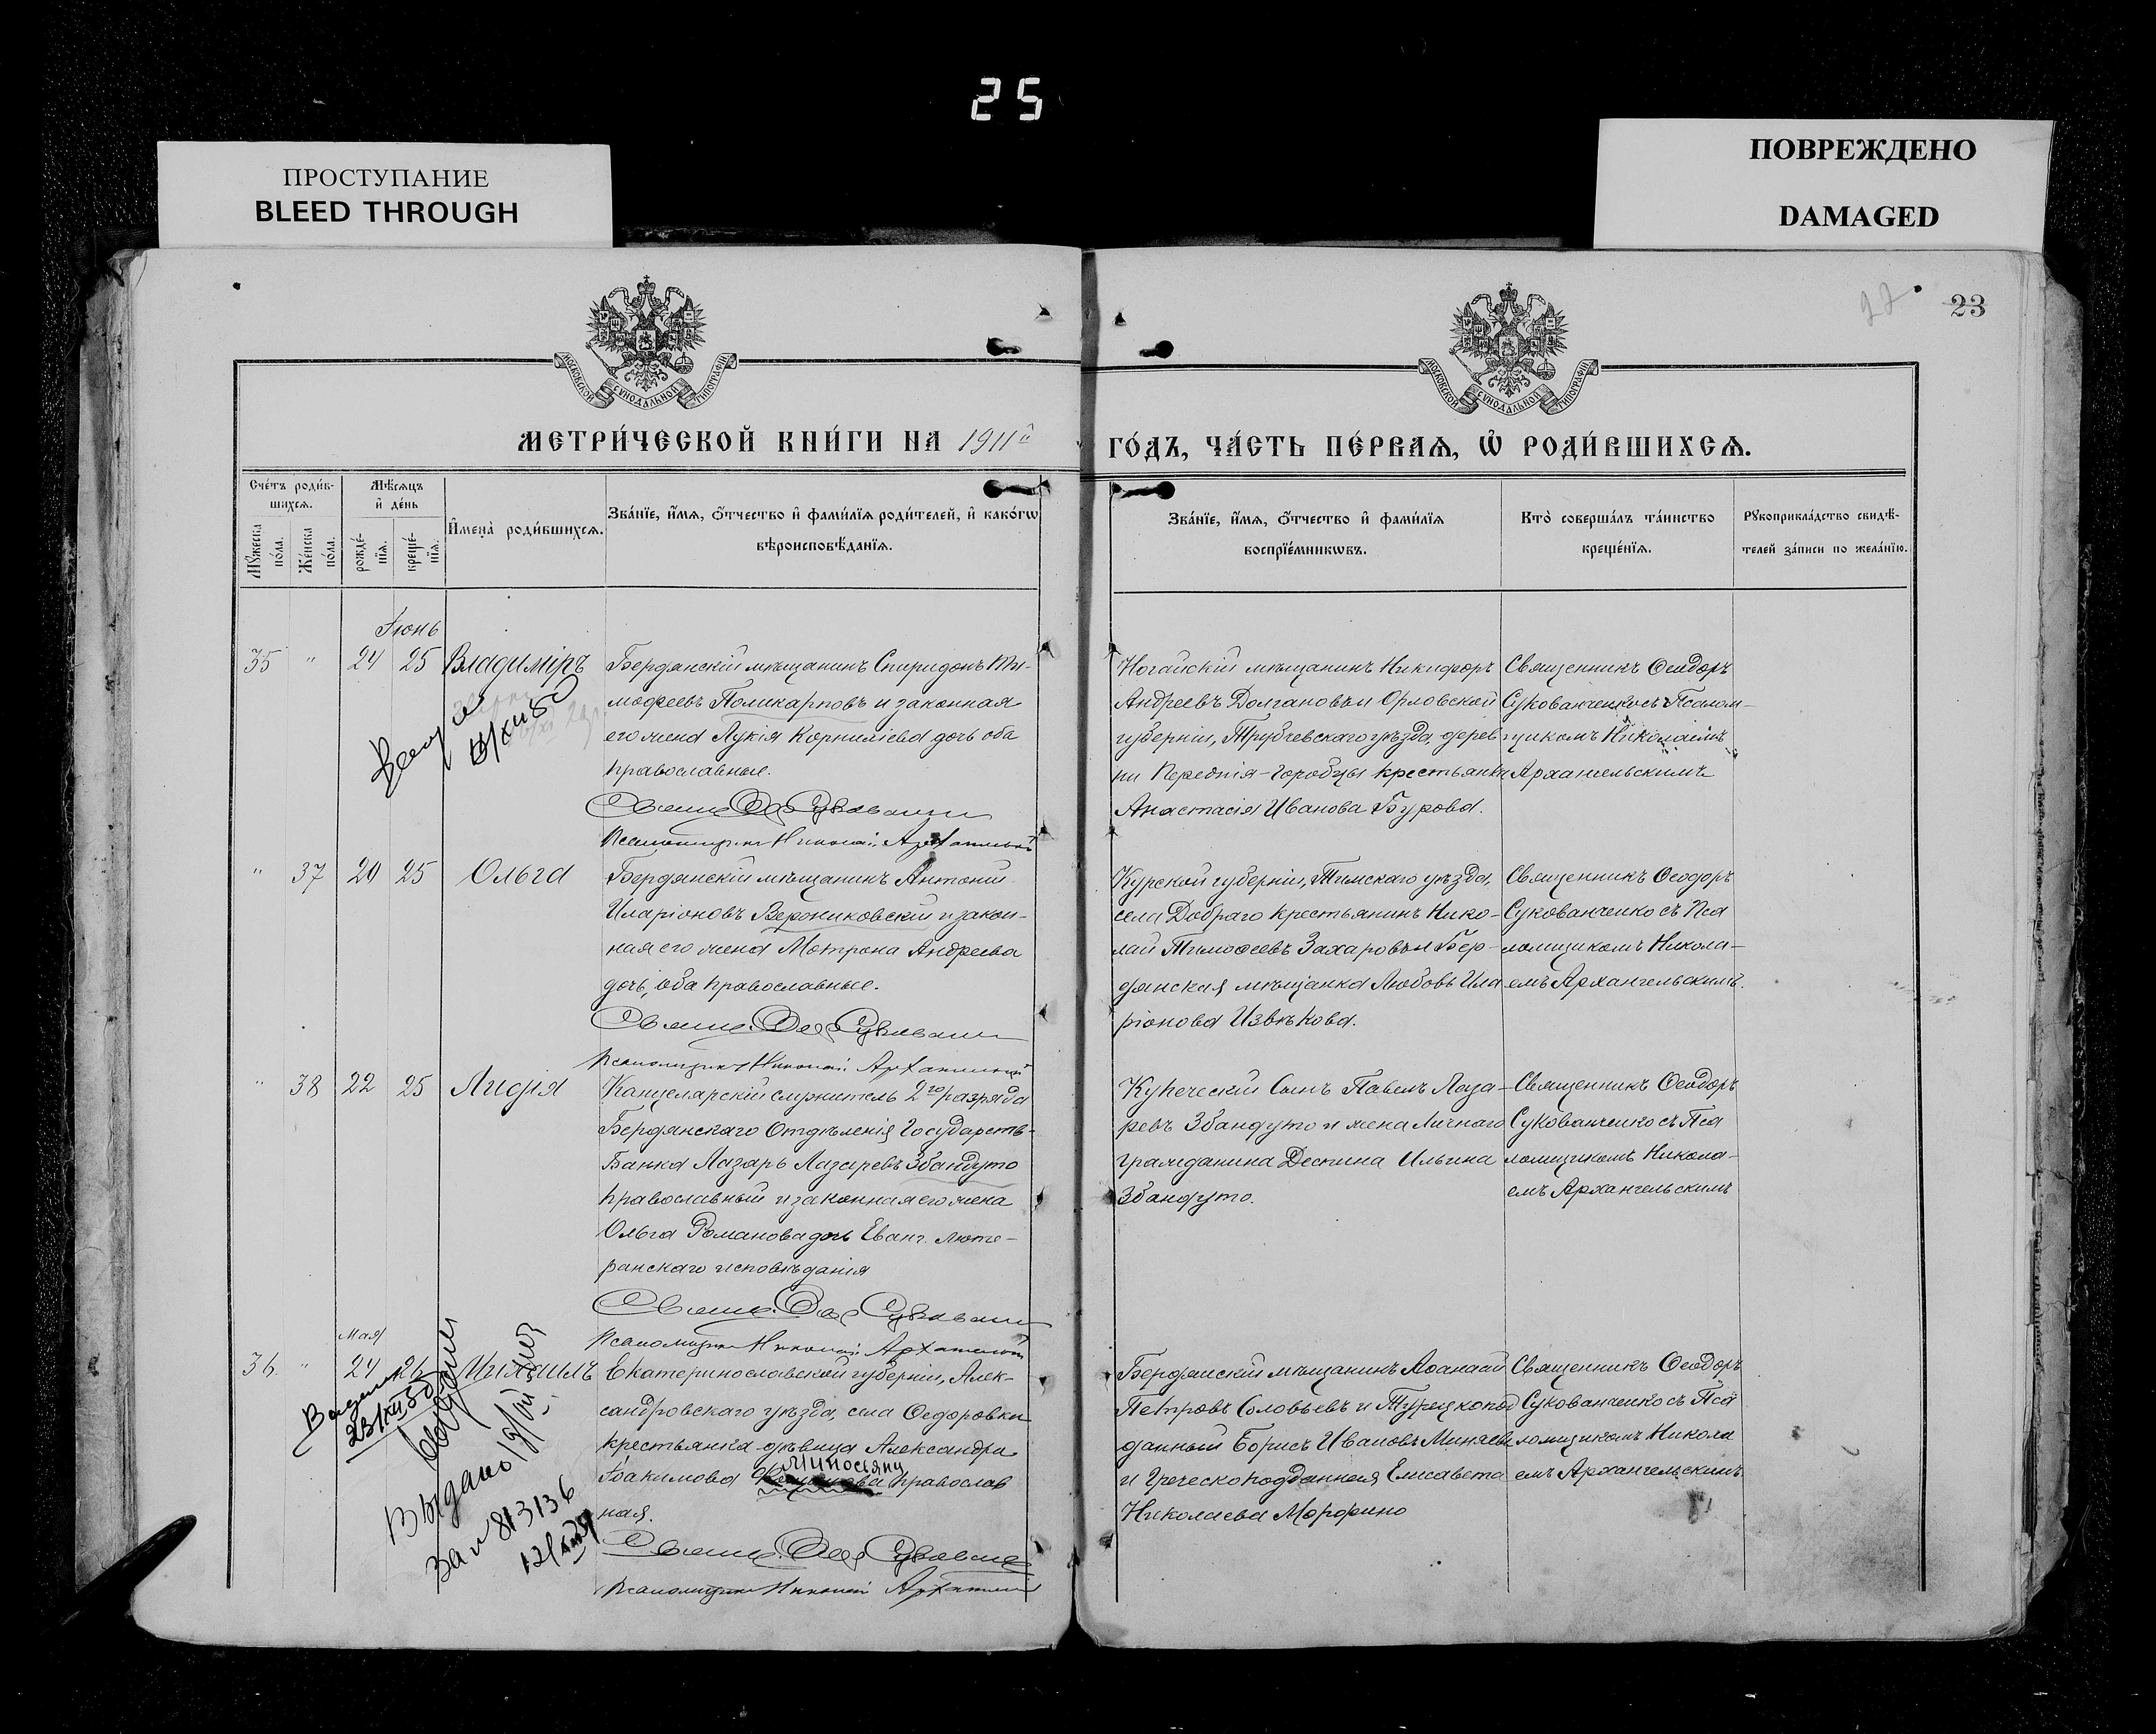 25
ПРОСТУПАНИЕ
BLEED THROUGH
ПОВРЕЖДЕНО
DAMAGED
27
23
МОСКОВСКОЙ СУНОДАЛЬНОЙ ТИПОГРАФІИ
МОСКОВСКОЙ СУНОДАЛЬНОЙ ТИПОГРАФІИ
МЕТРИ́ЧЕСКОЙ КНИ́ГИ НА 1911й ГО́ДЪ, ЧА́СТЬ ПЕ́РВАѦ, Ѡ҆ РОДИ́ВШИХСѦ.
Сче́тъ роди́в-
шихсѧ.
Мꙋ́жеска по́ла.
Же́нска по́ла.
Мѣ́сѧцъ
и҆ де́нь
рожде́-
нїѧ.
креще́-
нїѧ.
И҆мена̀ роди́вшихсѧ.
Зва́нїе, и҆́мѧ, ѻ҆́тчество и҆ фами́лїѧ роди́телей, и҆ како́гѡ
вѣроисповѣ́данїѧ.
Зва́нїе, и҆́мѧ, ѻ҆́тчество и҆ фами́лїѧ
воспрїе́мникѡвъ.
Кто̀ соверша́лъ та́инство
креще́нїѧ.
Рꙋкоприкла́дство свидѣ́-
телей за́писи по жела́нїю.
Іюнь
35 " 24 25 Владиміръ
Бердянскій мѣщанинъ Спиридонъ Ти-
мофеевъ Поликарповъ и законная
его жена Лукія Корниліева дочь оба
православные.
Псаломщикъ Николай Архангельскій
Ногайскій мѣщанинъ Никифоръ
Андреевъ Долгановъ и Орловской
губерніи, Трубчевскаго уѣзда дерев
ни Переднія-Городцы крестьянка
Анастасія Иванова Бурова.
Священникъ Ѳеодоръ
Сукованченко съ Псалом-
щикомъ Николаемъ
Архангельскимъ
" 37 20 25 Ольга
Бердянскій мѣщанинъ Антоній
Иларіоновъ Вержиковскій и закон-
ная его жена Мотрона Андреева
дочь, оба православные.
Псаломщикъ Николай Архангельскій
Курской губерніи, Тимскаго уѣзда,
села Добраго крестьянинъ Нико-
лай Тимоѳеевъ Захаровъ и Бер-
дянская мѣщанка Любовь Ила
ріонова Извѣкова.
Священникъ Ѳеодоръ
Сукованченко съ Пса
ломщикомъ Никола-
емъ Архангельскимъ.
" 38 22 25 Лидія
Канцелярскій служитель 2го разряда
Бердянскаго Отдѣленія Государств-
Банка Лазарь Лазаревъ Збандуто
православный и законная его жена
Ольга Романова дочь Еванг. Люте-
ранскаго исповѣданія
Псаломщикъ Николай Архангельскій
Купеческій Сынъ Павелъ Лаза-
ревъ Збандуто и жена Личнаго
гражданина Деспина Ильина
Збандуто.
Священникъ Ѳеодоръ
Сукованченко съ Пса
ломщикомъ Никола-
емъ Архангельскимъ
Мая
36. " 24 26 Михаилъ
Екатеринославской губерніи, Алек-
сандровскаго уѣзда, села Ѳедоровки
крестьянка-дѣвица Александра
Іоакимова православ
ная.
Псаломщикъ Николай Архангельскій
Бердянскій мѣщанинъ Аѳанасій
Петровъ Соловьевъ и Турецкопод
данный Борисъ Ивановъ Миняевъ
и Греческоподданная Елисавета
Николаева Морфино
Священникъ Ѳеодоръ
Сукованченко съ Пса
ломщикомъ Никола
емъ Архангельскимъ
Выдано
за № 813136